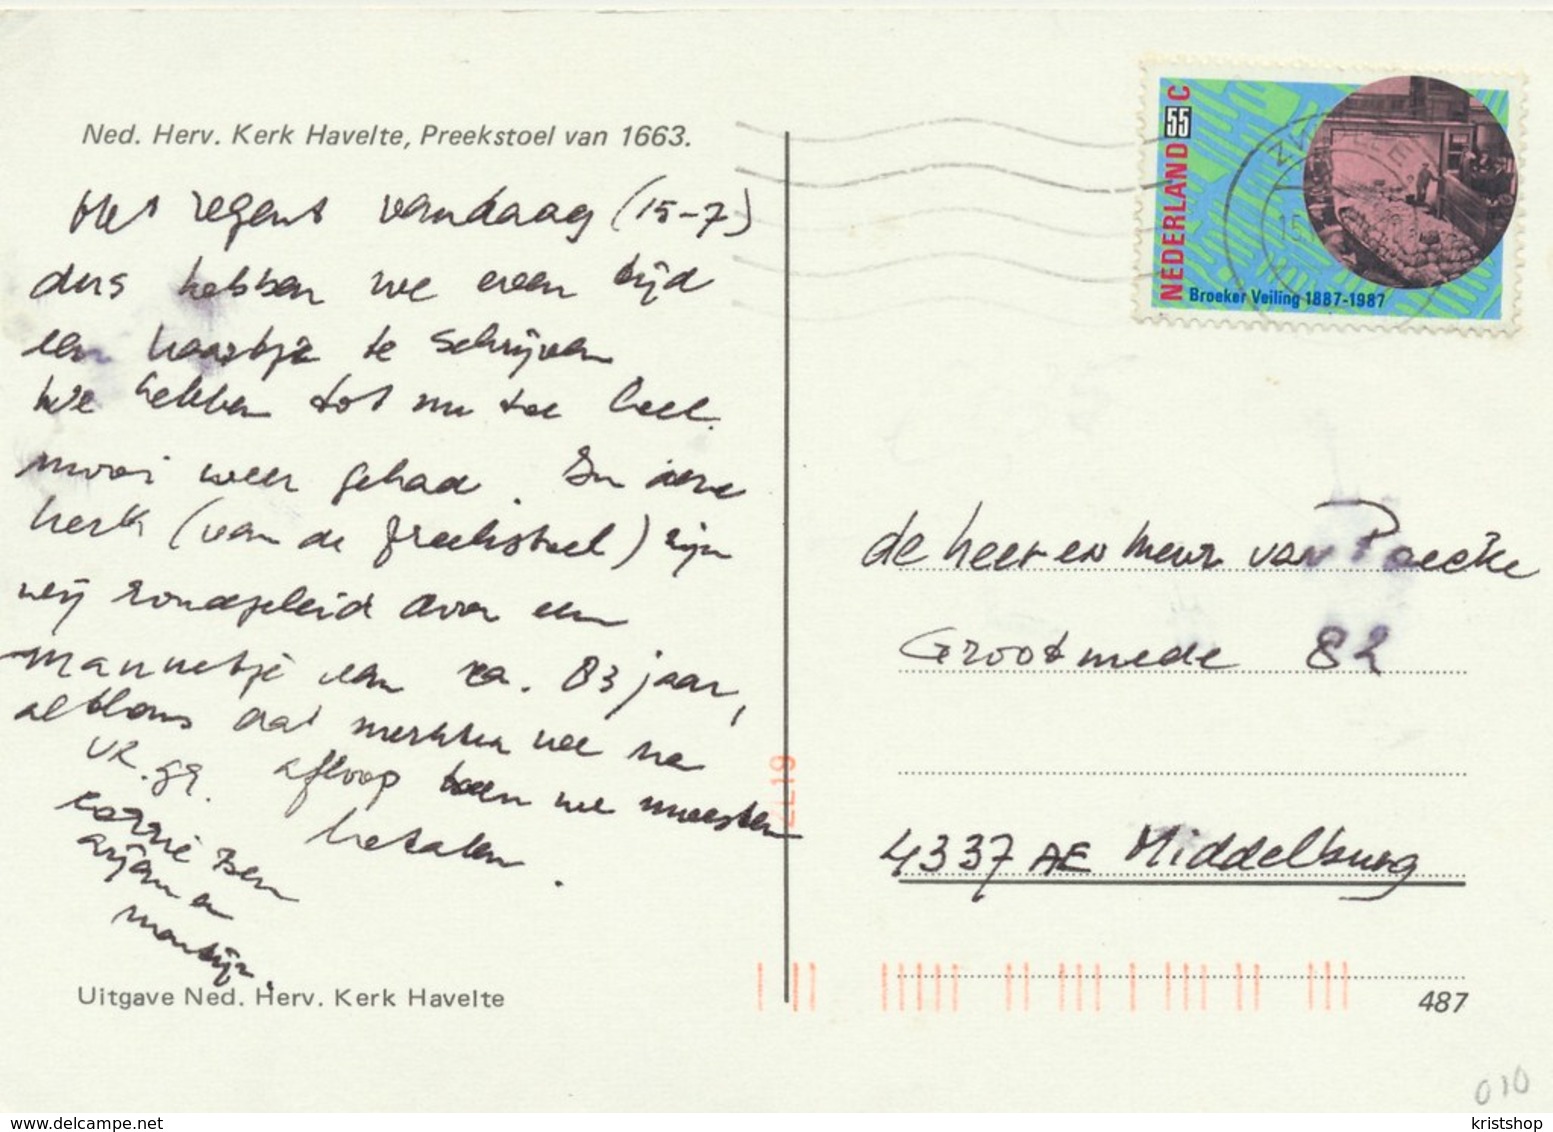 Ned. Herv. Kerk Havelte, Preekstoel van 1663.
Het regent vandaag (15-7)
dus hebben we even tijd
een kaartje te schrijven
We hebben tot nu toe heel
mooi weer gehad. In deze
kerk (van de preekstoel) zijn
wij rondgeleid door een
mannetje van ca. 83 jaar,
althans dat merkten we na
afloop toen we moesten
betalen.
VR. gr.
Corrie Ben
Arjan en
Martijn.
Uitgave Ned. Herv. Kerk Havelte
NEDERLAND 55 C
Broeker Veiling 1887-1987
de heer en mevr van Paecke
Grootmede 82
4337 AE Middelburg
487
010
www.delcampe.net
kristshop